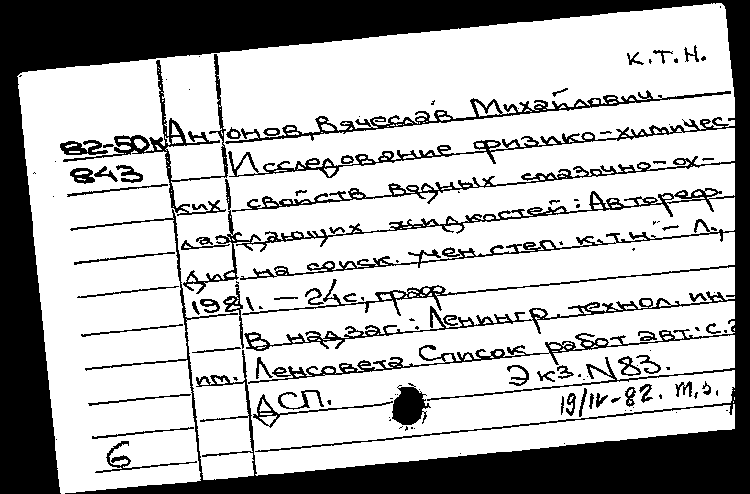 к.т.н.
82-50к Антонов, Вячеслав Михайлович.
843 Исследование физико-химичес-
ких свойств водных смазочно-ох-
лаждающих жидкостей: Автореф.
дис. на соиск. учен. степ. к.т.н. - Л.,
1981. - 24с, граф.
В надзаг.: Ленингр. технол. ин-
т. Ленсовета. Список работ авт.: с.
ДСП. Экз. N83.
19/IV-82. т.э.
6